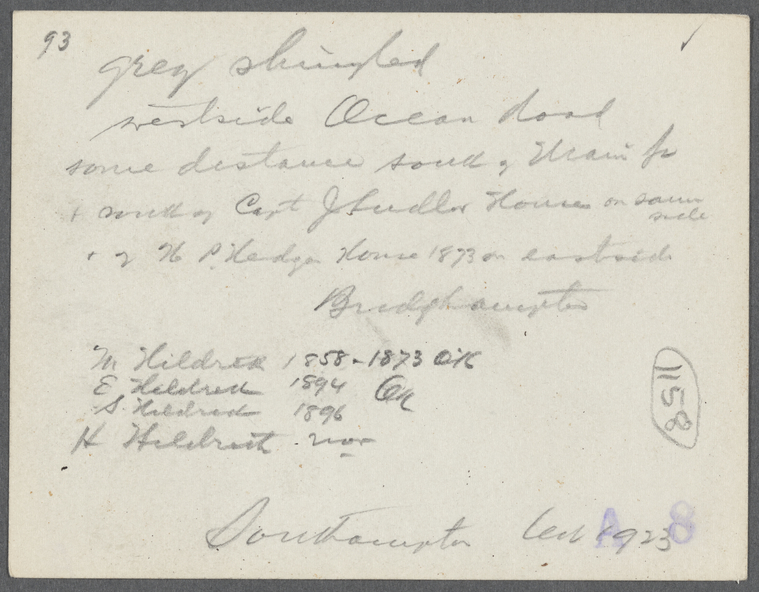 93
grey shingled
westside Ocean Road
some distance south of Main St
+ south of Capt J Sudlor House on same
side
+ of H P Hedges House 1873 on eastside
Bridgehampton
M Hildreth 1858-1873 OK
E Hildreth 1894 OK
S Hildreth 1896
H Hildreth now
1158
Southampton Oct 1923
A 8